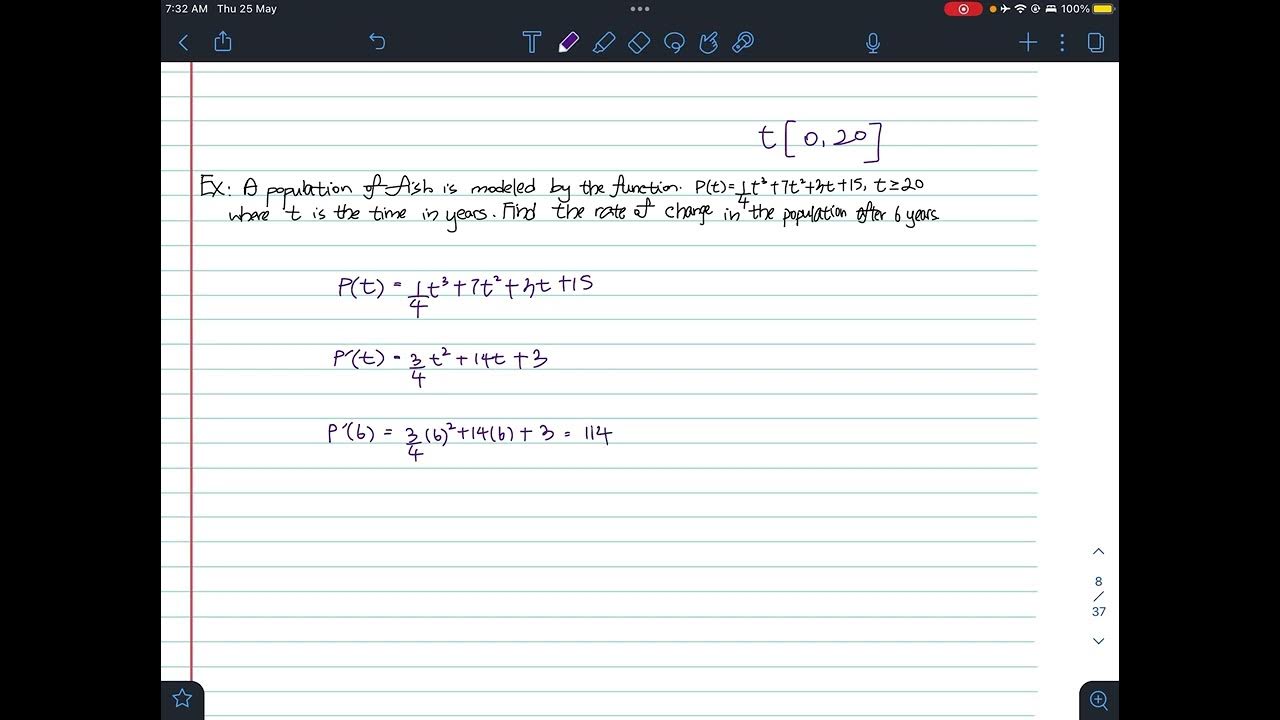 7:32 AM Thu 25 May
100%
t [0, 20]
Ex: A population of fish is modeled by the function. P(t) = 1/4 t³ + 7t² + 3t + 15, t ≥ 20
where t is the time in years. Find the rate of change in the population after 6 years
P(t) = 1/4 t³ + 7t² + 3t + 15
P'(t) = 3/4 t² + 14t + 3
P'(6) = 3/4 (6)² + 14(6) + 3 = 114
8
/
37